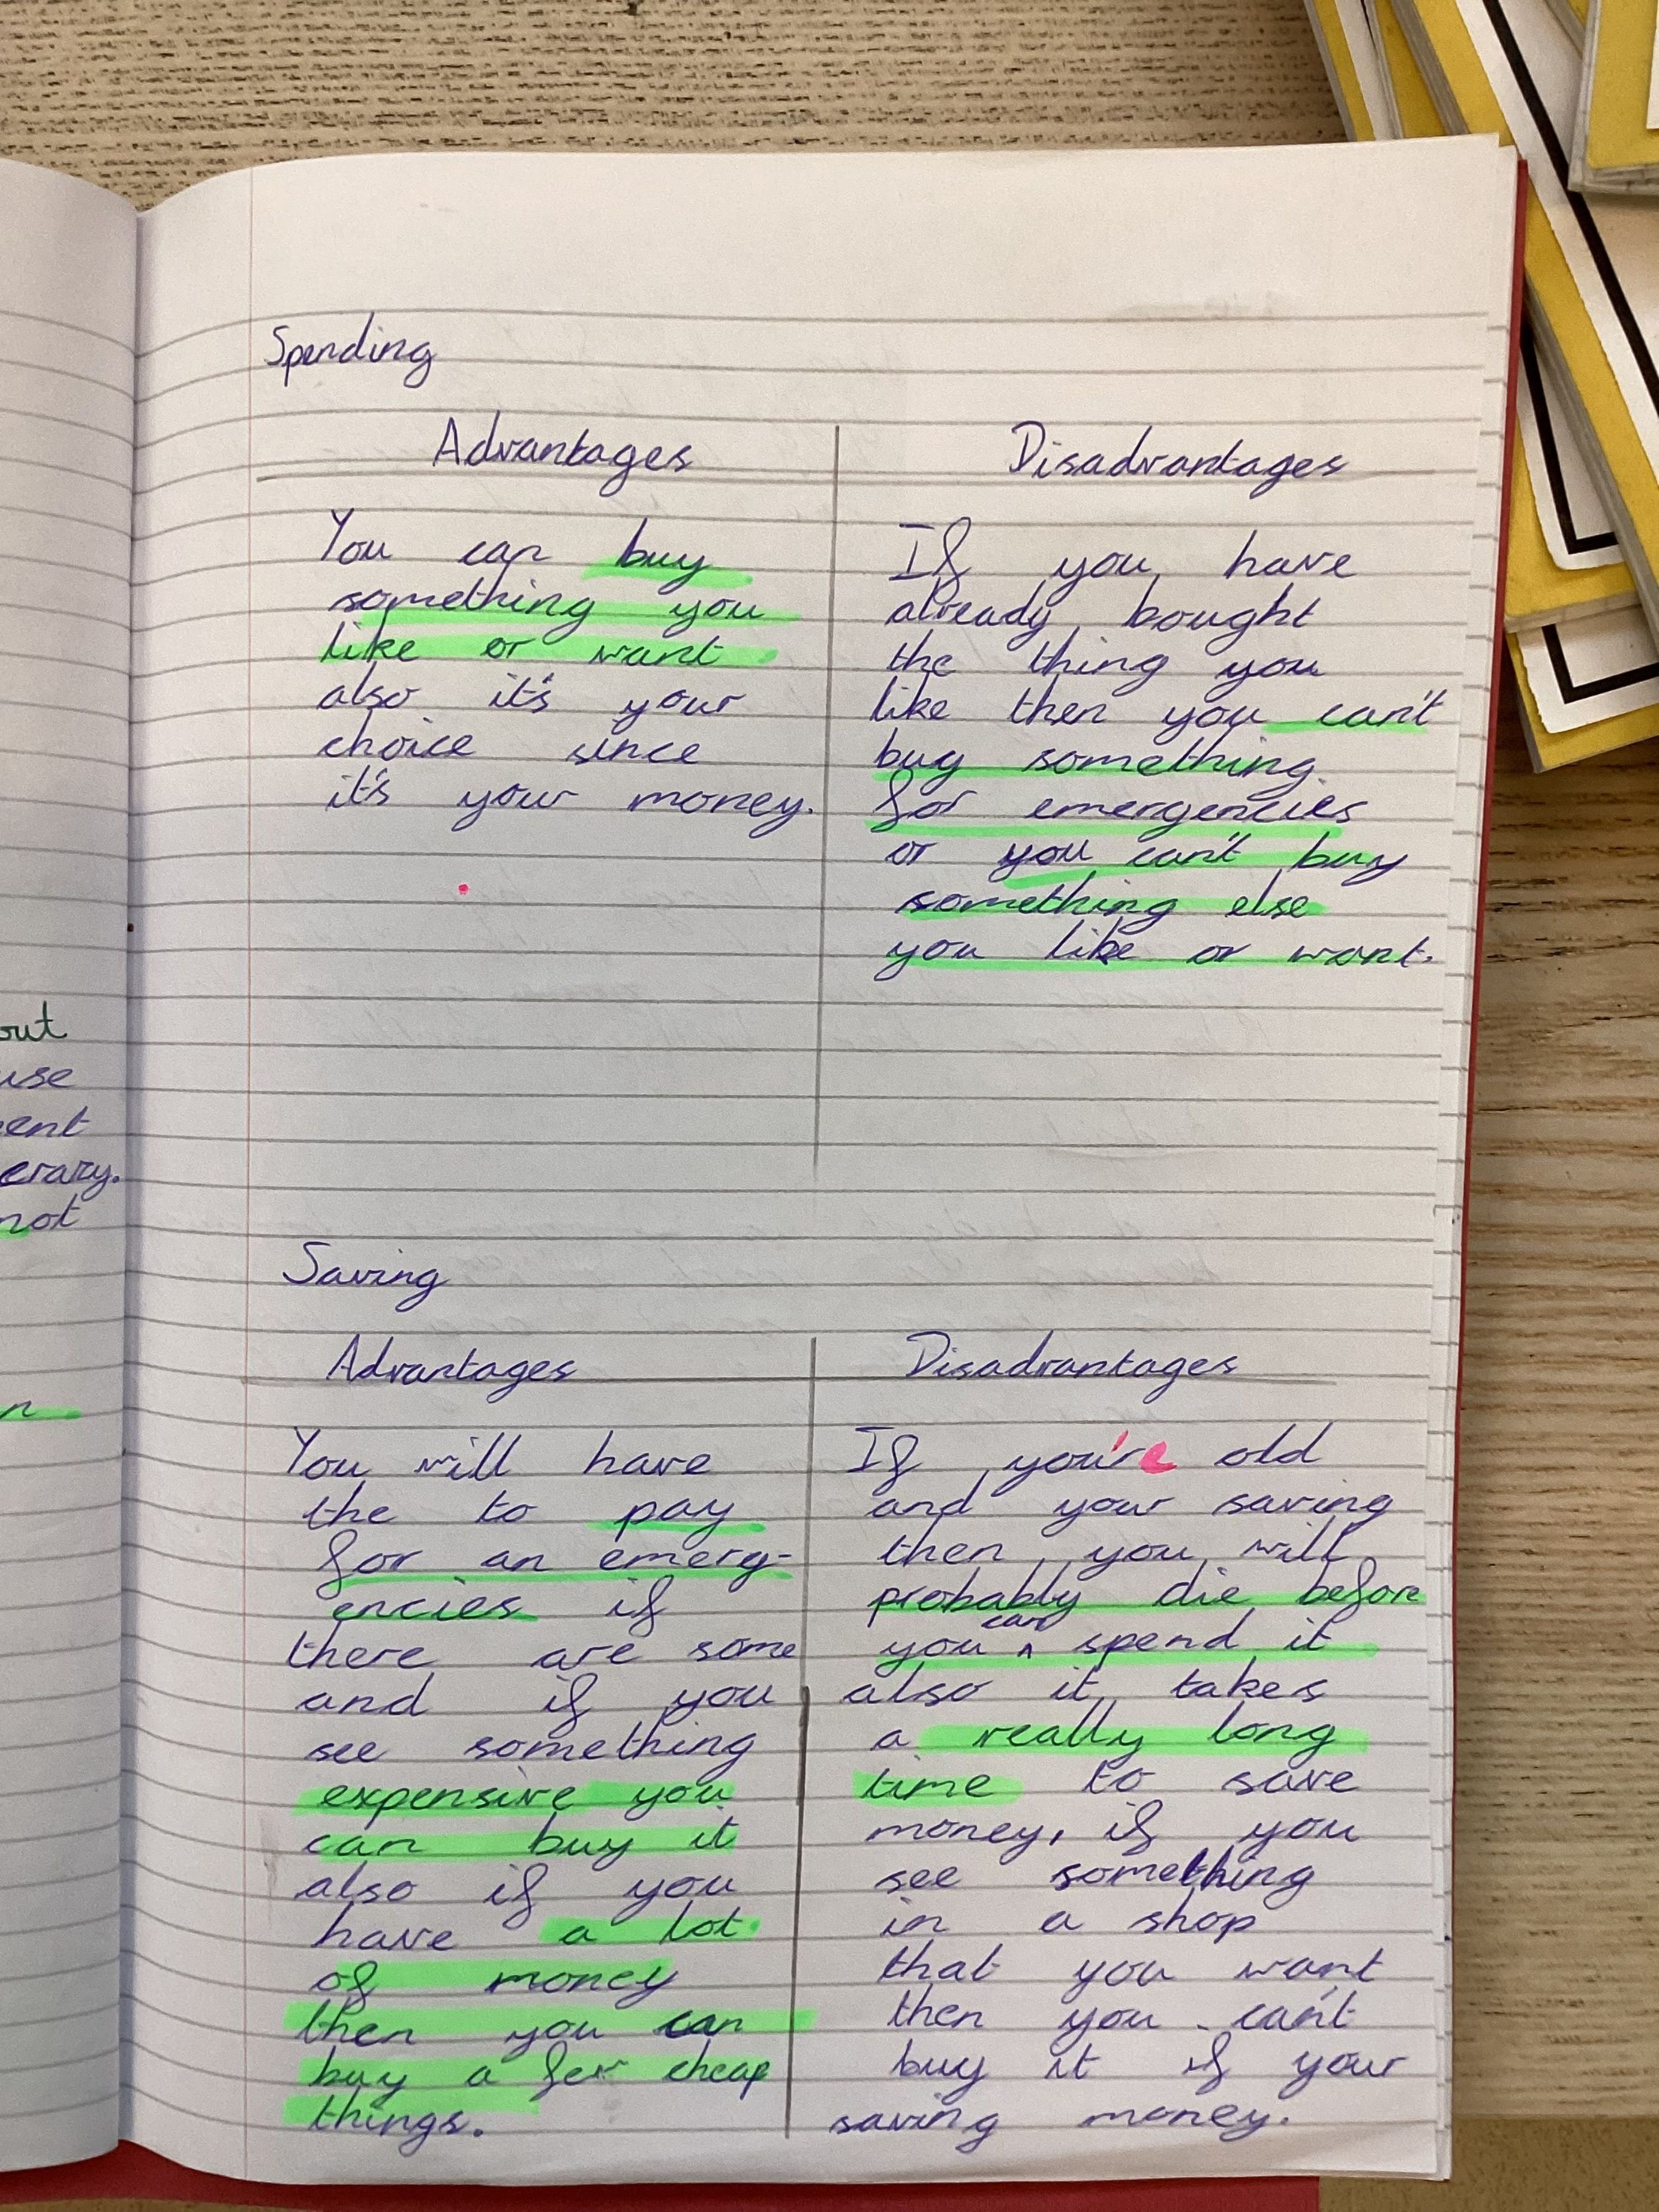 Spending
Advantages
You can buy
something you
like or want
also it's your
choice since
it's your money.
Disadvantages
If you have
already bought
the thing you
like then you can't
buy something
for emergencies
or you can't buy
something else
you like or want.
Saving
Advantages
You will have
the to pay
for an emerg-
encies if
there are some
and if you
see something
expensive you
can buy it
also if you
have a lot
of money
then you can
buy a few cheap
things.
Disadvantages
If you're old
and your saving
then you will
probably die before
you can spend it
also it takes
a really long
time to save
money, if you
see something
in a shop
that you want
then you can't
buy it if your
saving money.
out
use
ent
erary.
not
n